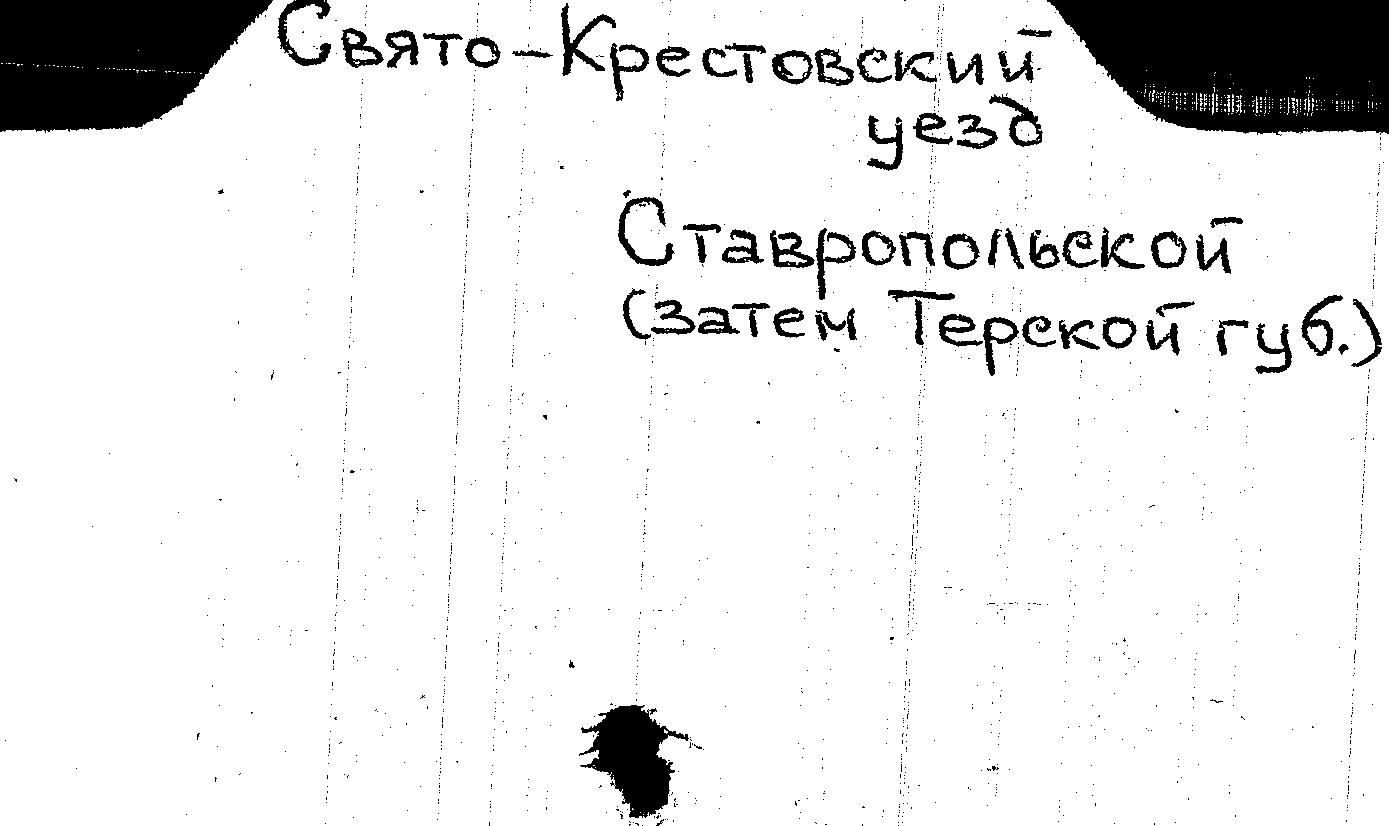 Свято-Крестовский
уезд
Ставропольской
(затем Терской губ.)